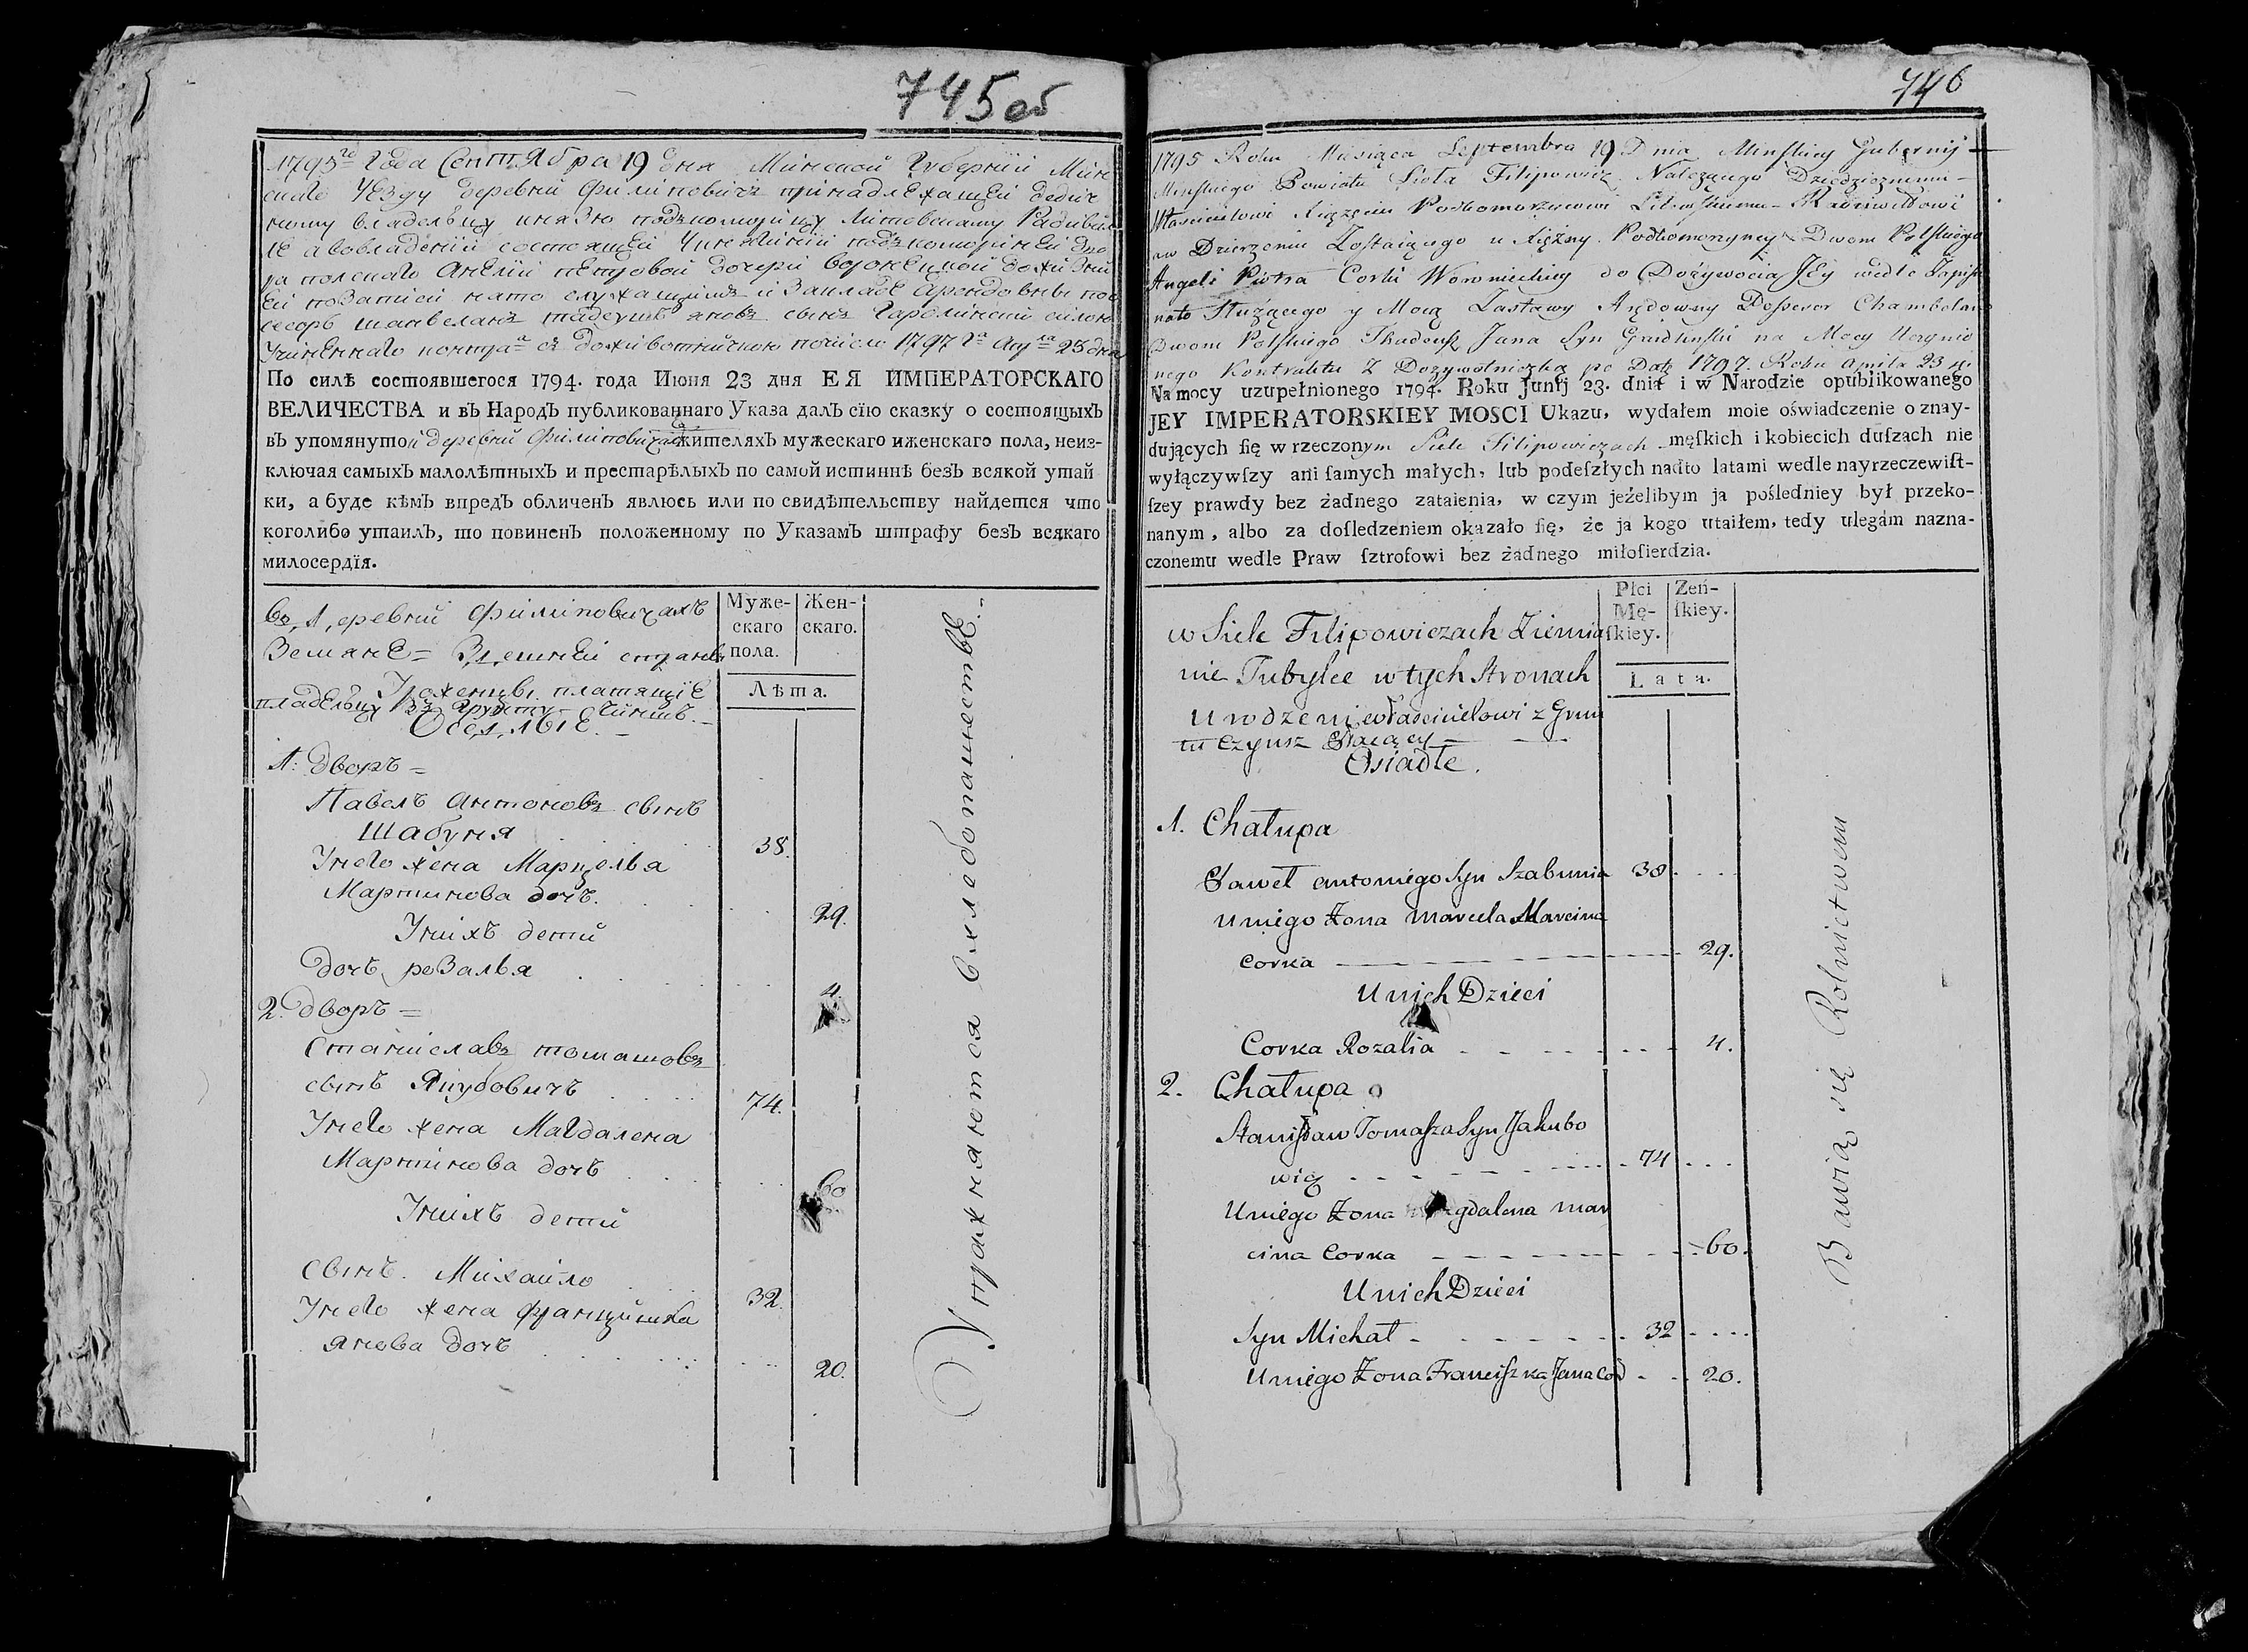 745 об
1795го Года Сентября 19 дня Минской Губернии Мин
скаго Уезду деревни Филиповичъ принадлежащей Дедич
ному владельцу князю подъкоморыцу Литовскому Радивил
ле а во владении состоящей Княжинии подъкоморинеи дво
ра полскаго Анелии петровой дочери Воронецкой дожизни
ей по записи на то служащимъ и закладе арендовны пос
сесоръ шамбеланъ тадеушъ яновъ сынъ
дня
По силѣ состоявшегося 1794. года Июня 23 дня ЕЯ ИМПЕРАТОРСКАГО
ВЕЛИЧЕСТВА и въ Народъ публикованнаго Указа далъ сїю сказку о состоящыхъ
въ упомянутой деревни Филиповичахъ жителяхъ мужескаго иженскаго пола, неиз-
ключая самыхъ малолѣтныхъ и престарѣлыхъ по самой истиннѣ безъ всякой утай
ки, а буде кѣмъ впредъ обличенъ явлюсь или по свидѣтельству найдется что
коголибо утаилъ, то повиненъ положенному по Указамъ штрафу безъ всякаго
милосердїя.
Муже-
скаго
пола.
Жен-
скаго.
Лѣта.
Во деревни Филиповичахъ
Земяне = Здешней стране
Урожены платящие
владельцу За Грунту Чиншъ. -
Оседлые. -
1. дворъ =
Павелъ Антоновъ сынъ
Шабуня 38.
Унего жена Марцелья
Мартинова дочь. 29.
Унихъ дети
дочь розалья 4.
2. дворъ =
Станиславъ томашовъ
сынъ Якубовичъ 74.
Унего жена Магдалена
Мартинова дочь 60
Унихъ дети
сынъ. Михайло 32.
Унего жена францишка
янова дочь 20.
Упражняются В хлебопашестве. -
746
1795 Roku Miesiąca Septembra 19 Dnia Minskiey Gubernij
Minskiego Powiatu Sioła Filipowicz Należącego Dziedzicznemu
Właścicielowi Xiążęciu Podkomorzycowi Litewskiemu Radziwiłłowi
aw Dzierzeniu Zostaiącego u Xiężny Podkomorzyney Dwora Polskiego
Angeli Piotra Corki Woronieckiey do Dożywocia JEy wedle Zapisu
nato Służącego y Mocą Zastawy Arędowny Possesor Chambelan
Dworu Polskiego Thadeusz Jana Syn na Mocy Uczynio
nego Kontraktu z Dożywotniczką po Datę 1797. Roku Aprila 23 d.
Na mocy uzupełnionego 1794. Roku Junij 23. dnia i w Narodzie opublikowanego
JEY IMPERATORSKIEY MOSCI Ukazu, wydałem moie oświadczenie o znay-
dujących ſię w rzeczonym Siele Filipowiczach męſkich i kobiecich duſzach nie
wyłączywſzy ani ſamych małych, lub podeſzłych nadto latami wedle nayrzeczewiſt-
ſzey prawdy bez żadnego zataienia, w czym jeżelibym ja pośledniey był przeko-
nanym, albo za doſledzeniem okazało ſię, że ja kogo utaiłem, tedy ulegam nazna-
czonemu wedle Praw ſztrofowi bez żadnego miłoſierdzia.
Płci
Mę-
ſkiey.
Zeń-
ſkiey.
Lata.
w Siele Filipowiczach Ziemia
nie Tubylce w tych Stronach
Urodzeni właścicielowi z Grun
tu Czynsz Płacący
Osiadłe.
1. Chałupa
Paweł antoniego Syn Szabunia 38
Uniego Żona Marcela Marcina
Corka 29.
Unich Dzieci
Corka Rozalia 4.
2. Chałupa
Stanisław Tomaſza Syn Jakubo
wicz 74
Uniego Żona Magdalena mar
cina Corka 60.
Unich Dzieci
Syn Michał 32
Uniego Żona Franciſzka Jana Cor 20.
Bawią się Rolnictwem